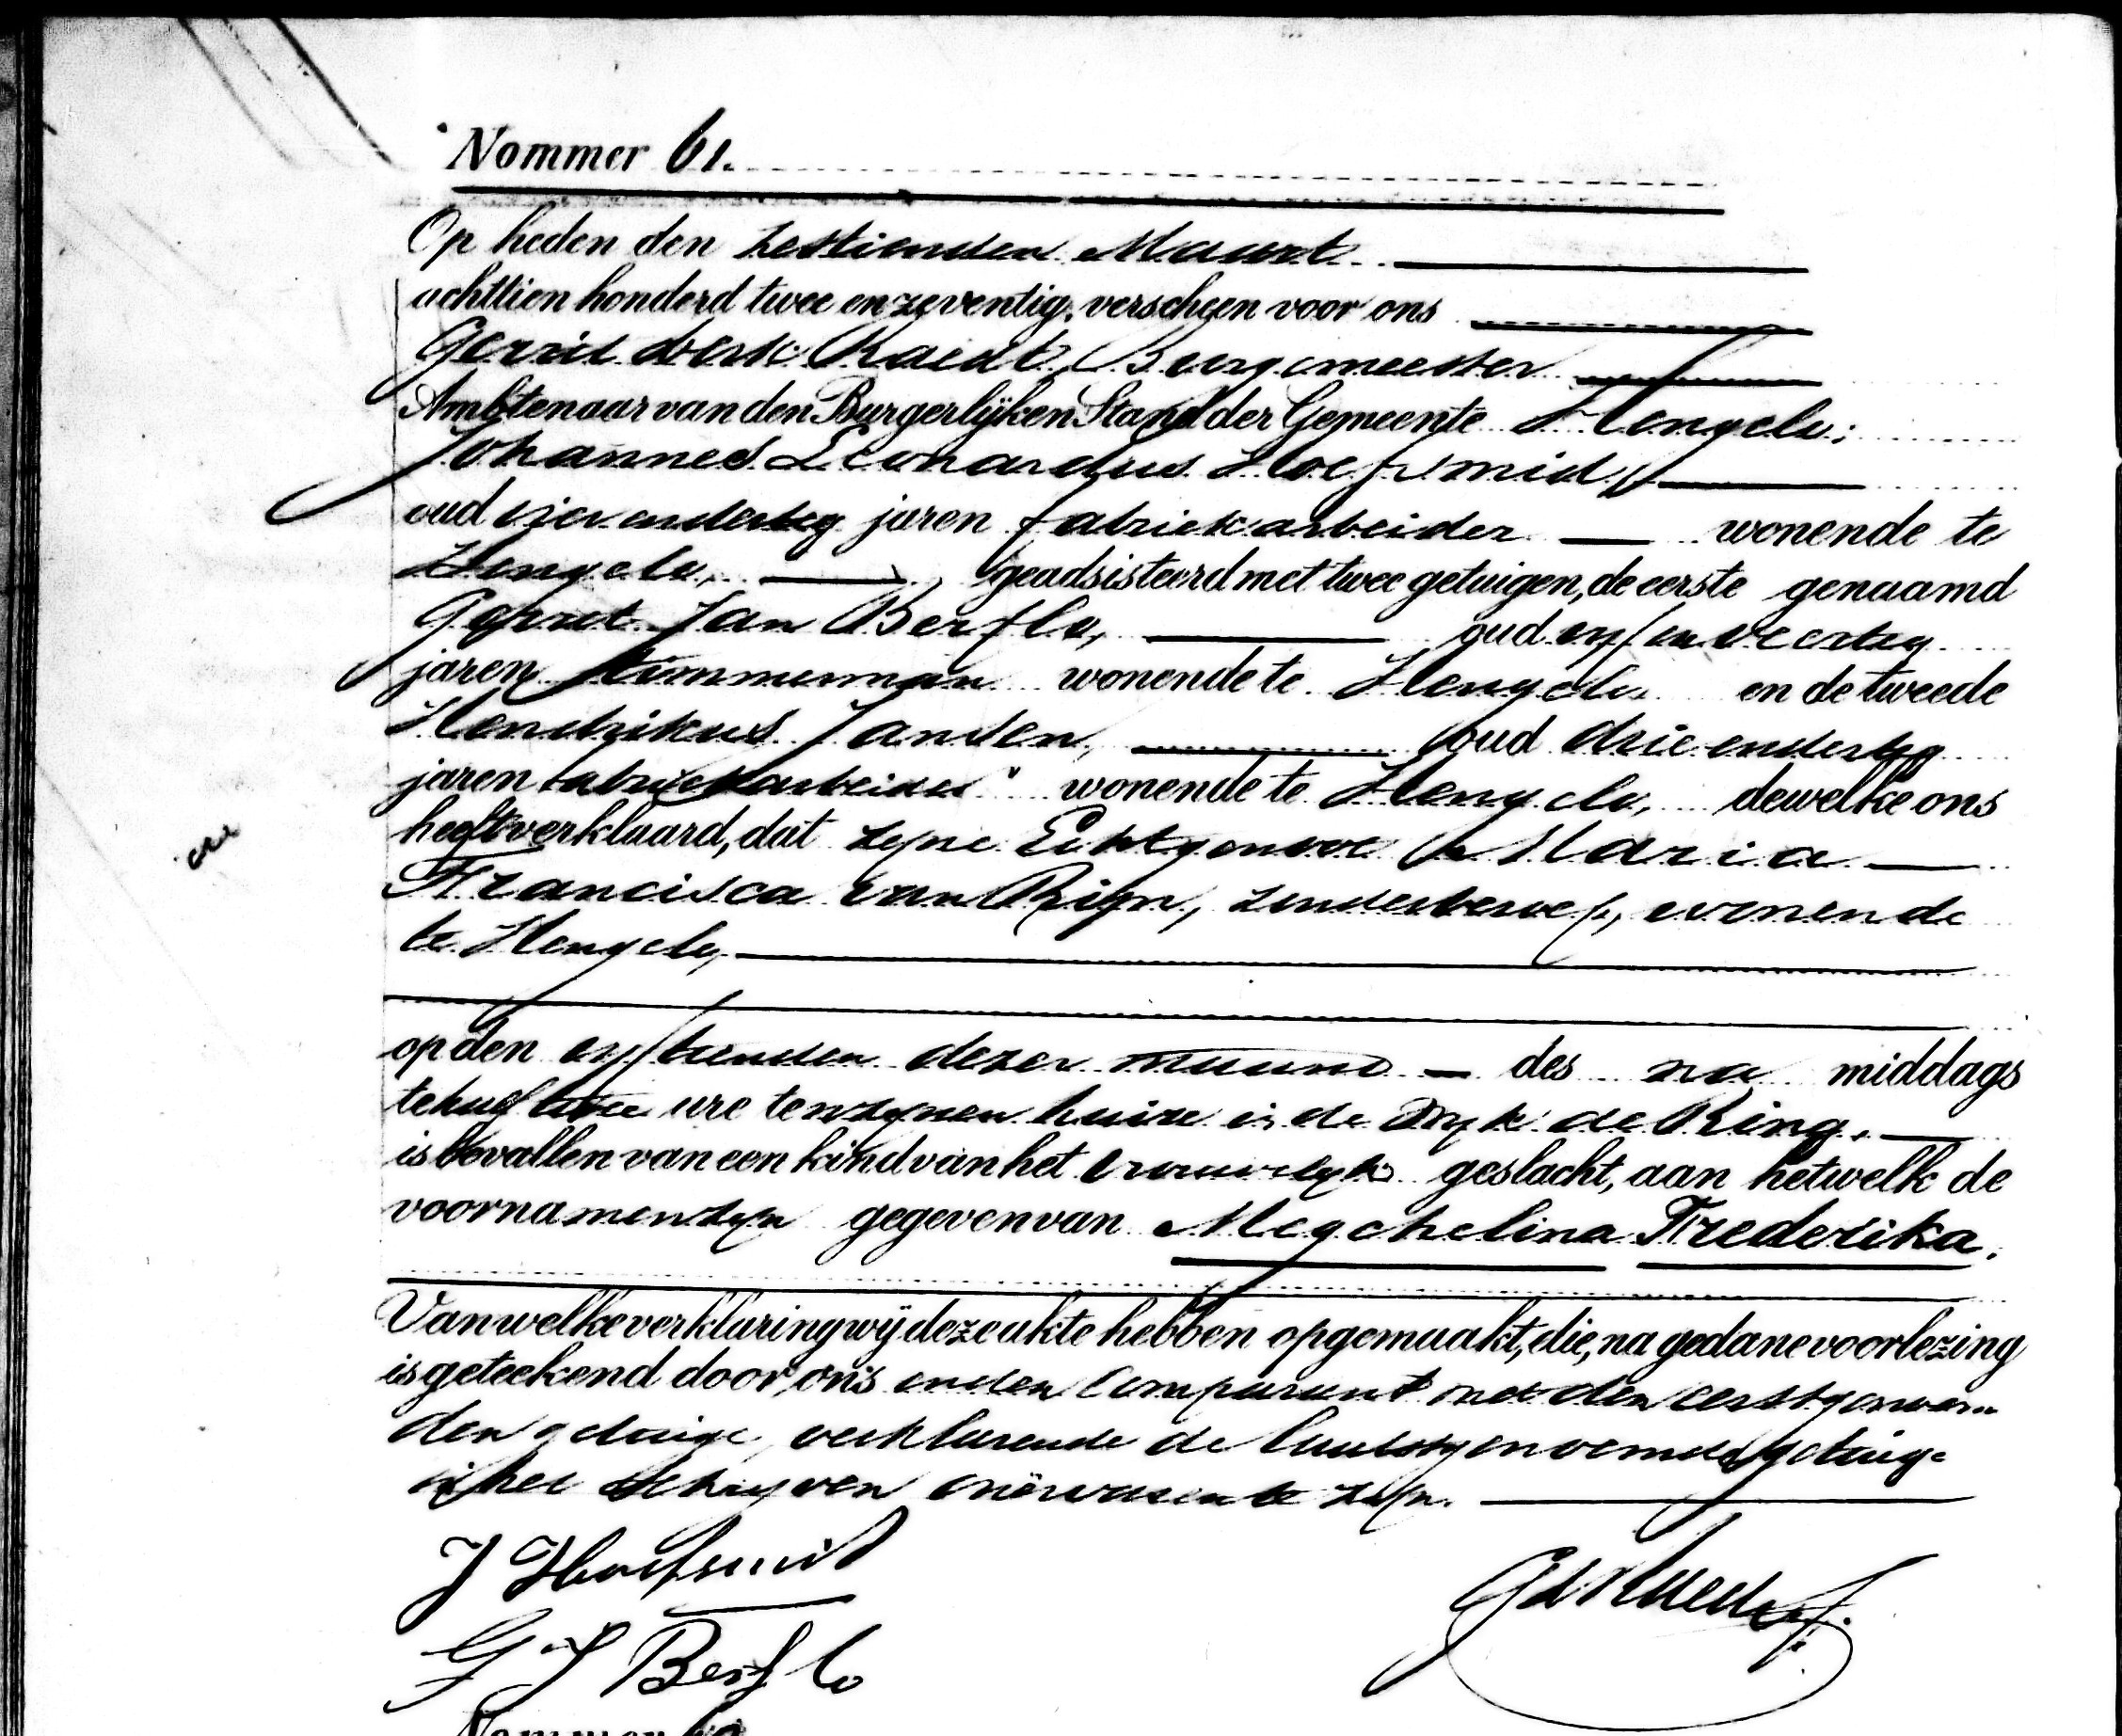 Nommer 61.
Op heden den zestienden Maart
achttien honderd twee en zeventig, verscheen voor ons
Gerrit derk Raedt, Burgemeester
Ambtenaar van den Burgerlijken Stand der Gemeente Hengelo;
Johannes Leonardus Hoefsmid,
oud vier endertig jaren fabriekarbeider wonende te
Hengelo, geadsisteerd met twee getuigen, de eerste genaamd
Gerrit Jan Berflo, oud vijf en veertig
jaren timmerman wonende te Hengelo en de tweede
Hendrikus Jansen, oud drie endertig
jaren fabriekarbeider wonende te Hengelo, dewelke ons
heeft verklaard, dat zijne Echtgenoote Maria
Francisca van Rijn, zonder beroep, wonende
te Hengelo,
op den vijftienden dezer maand des na middags
te half twee ure ten zijnen huize in de Wijk de Ring,
is bevallen van een kind van het vrouwelijk geslacht, aan hetwelk de
voornamen zijn gegeven van Megchelina Frederika.
Van welke verklaring wij deze akte hebben opgemaakt, die, na gedane voorlezing
is geteekend door ons en den Comparant met den eerstgenoem-
den getuige, verklarende de laatstgenoemde getuige
in het schrijven onërvaren te zijn.
J Hoefsmid
G J Berflo